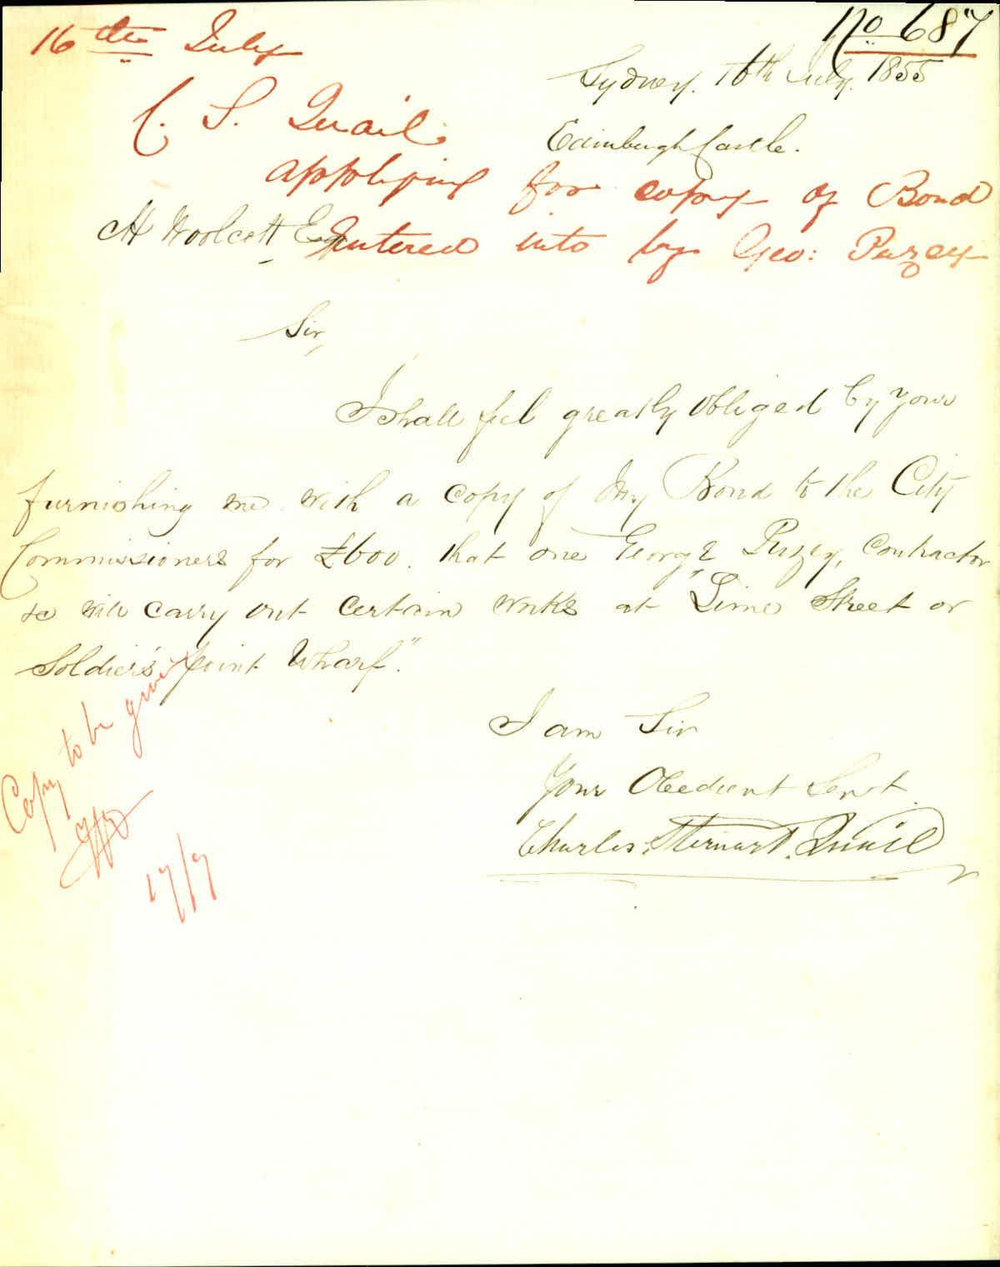 No 687
16th July
Sydney. 16th July. 1855
C. S. Quail
Edinburgh Castle.
applying for copy of Bond
H Woolcott Esq
Entered into by Geo: Puzey
Sir,
I shall feel greatly obliged by your
furnishing me with a copy of my Bond to the City
Commissioners for £600. that one George Puzey, Contractor
will carry out certain works at "Lime Street or
Soldier's point Wharf."
Copy to be given
17/7
I am Sir
Your Obedient Servt.
Charles Stewart Quail